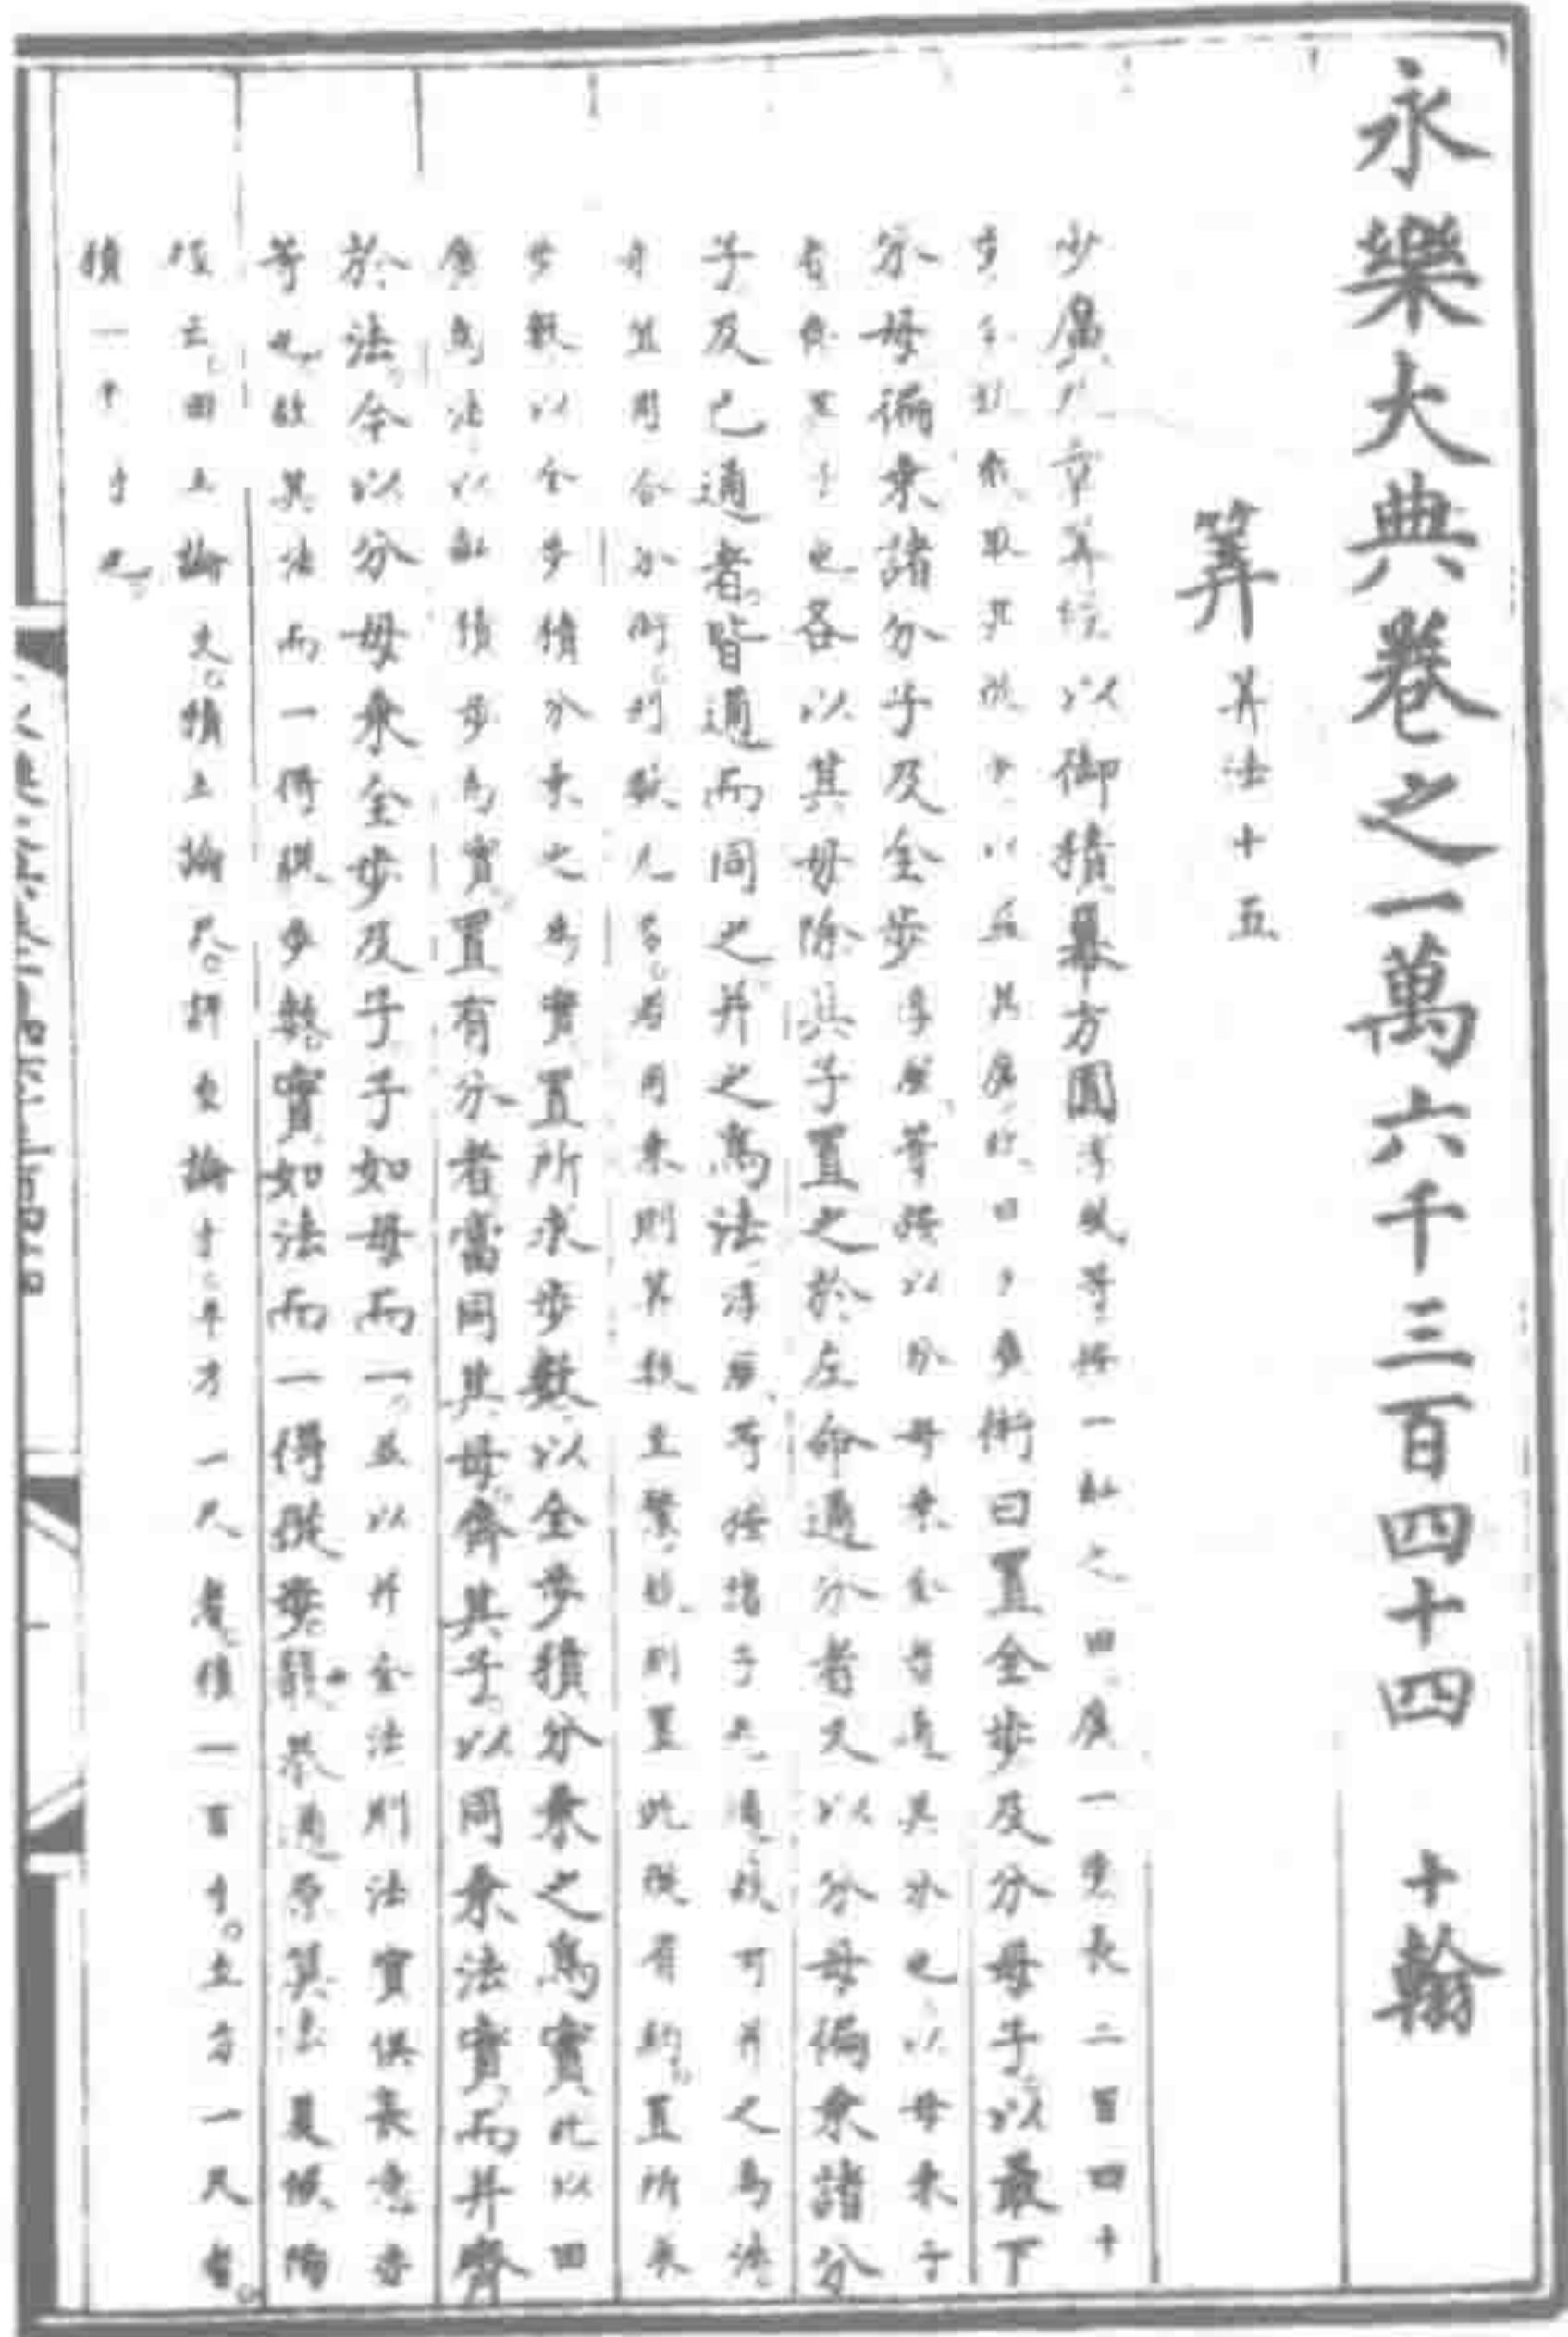 永樂大典卷之一萬六千三百四十四 十翰
筭 筭法十五
少廣九章筭經以御積冪方圓淳風等按一畝之田廣一步長二百四十
步今欲截取其從少以益其廣故曰少廣術曰置全步及分母子以最下
分母徧乗諸分子及全步淳風等按以分母乗全者通其分也以母乗子
者齊其子也各以其母除其子置之於左命通分者又以分母徧乗諸分
子及已通者皆通而同之并之爲法淳風等按諸子悉通故可并之爲法
亦宜用合分術列數尤多若用乗則筭數至繁故別置此從省約置所求
步數以全步積分乗之爲實置所求步數以全步積分乗之爲實此以田
廣爲法以畝積步爲實置有分者當同其母齊其子以同乗法實而并齊
於法今以分母乗全步及子子如母而一並以并全法則法實俱長意亦
等也故其法而一得從步數實如法而一得從步 通原筭法夏侯陽
經云田土論丈積土論尺 論寸平方一尺者積一百寸立方一尺者
積一千寸也